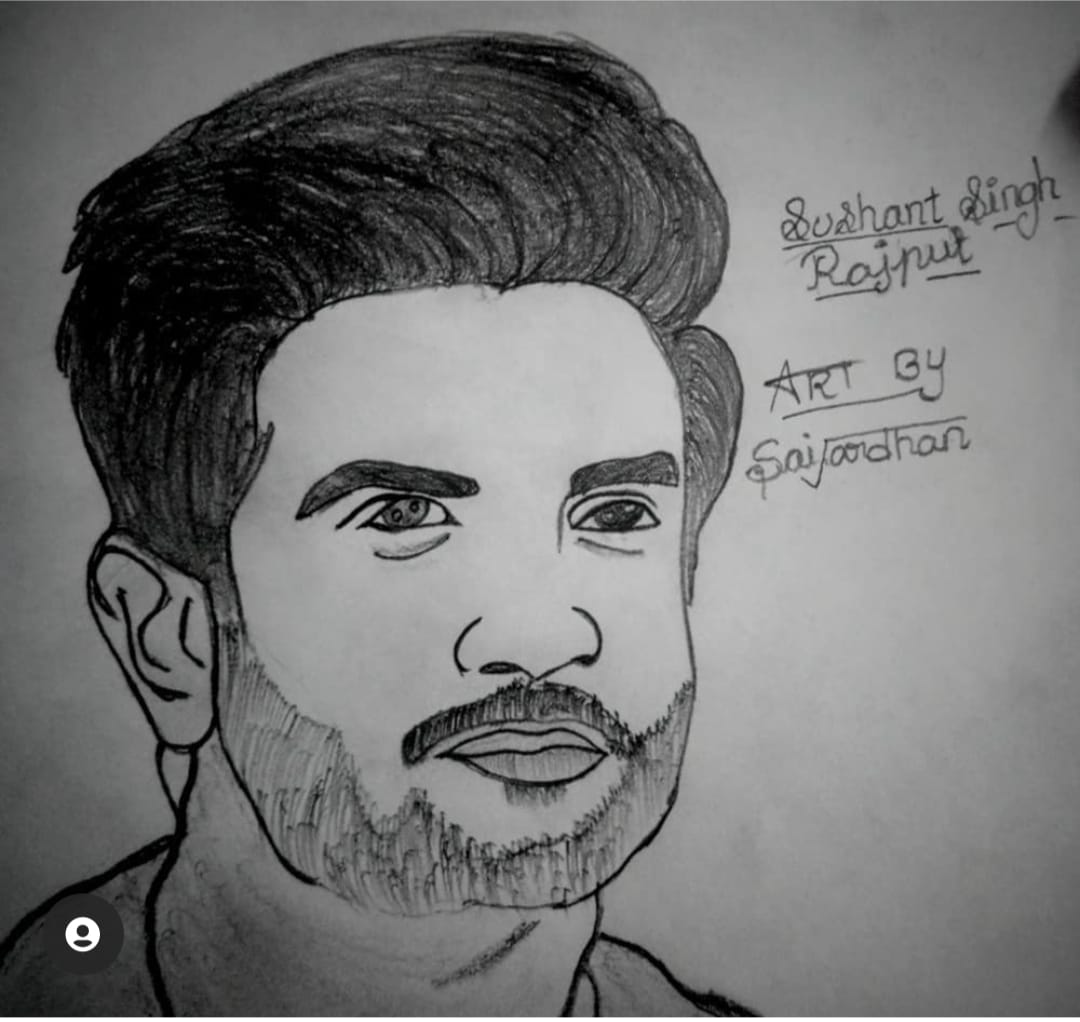 Sushant Singh
Rajput
ART By
Saivardhan